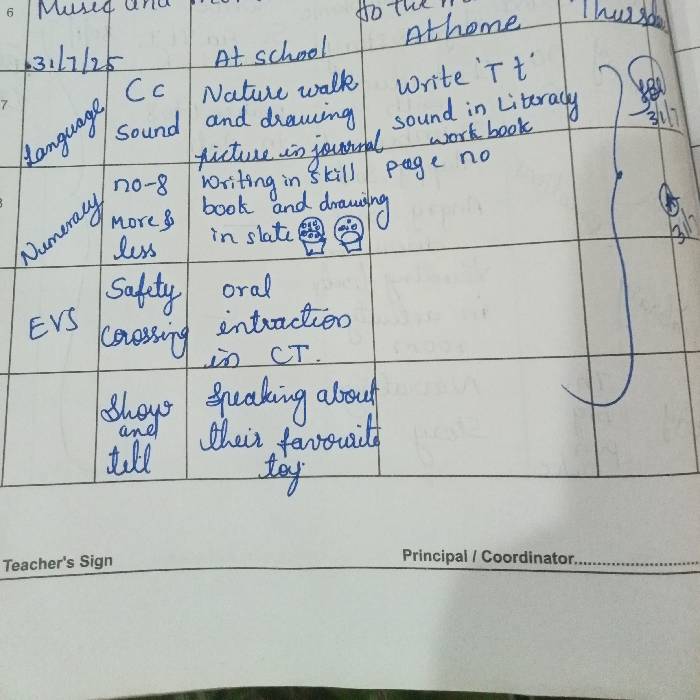 6 Music and
to the
31/7/25 At school At home Thursd
7 Language Cc Sound Nature walk and drawing picture in journal Write 'T t' sound in Literacy work book page no
31/7
Numeracy no-8 More & less Writing in skill book and drawing in slate
EVS Safety Corossing oral intraction in CT.
Show and tell Speaking about their favourite toy
Teacher's Sign Principal / Coordinator